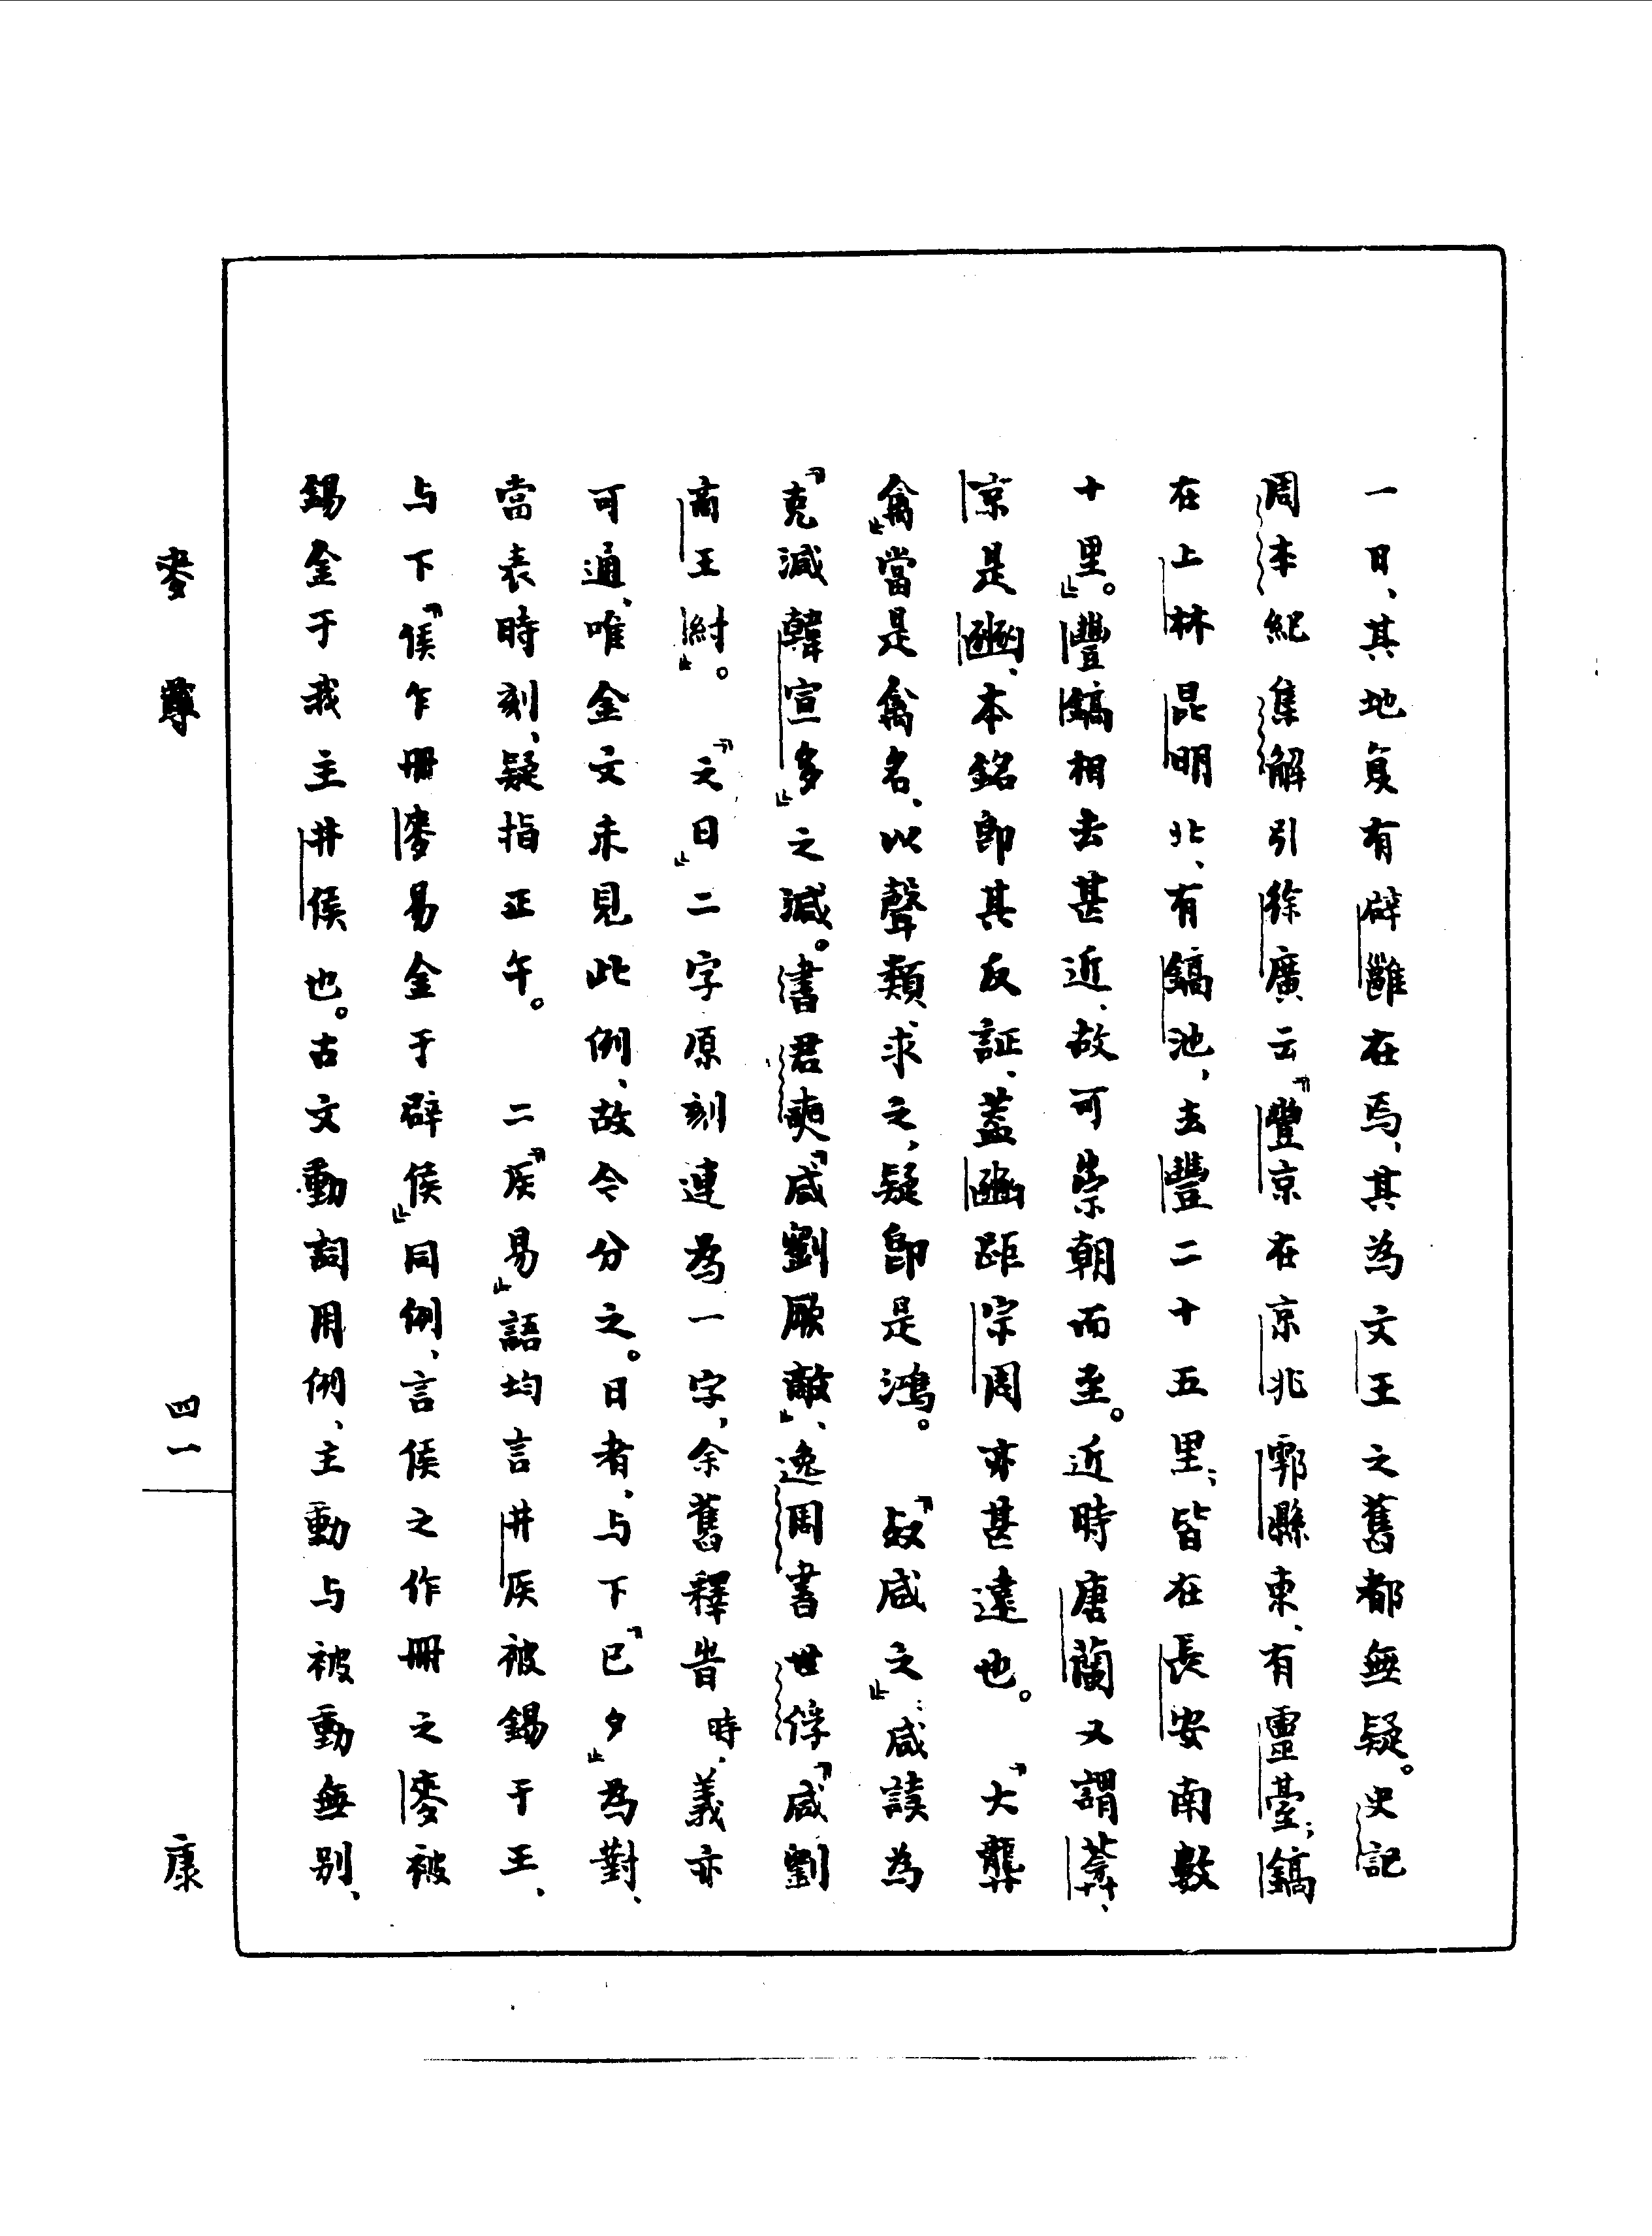 一日、其地复有辟雝在焉、其為文王之舊都無疑。史記
周本紀集解引徐廣云『豐京在京兆鄠縣東、有靈臺；鎬
在上林昆明北、有鎬池，去豐二十五里；皆在長安南數
十里』。豐鎬相去甚近、故可崇朝而至。近時唐蘭又謂葊
京是豳、本銘即其反証、蓋豳距宗周亦甚遠也。『大龏
禽』當是禽名、以聲類求之，疑即是鴻。『𠭯咸之』：咸讀為
『克減韓宣多』之減。書君奭『咸劉厥敵』、逸周書世俘『咸劉
商王紂』。『之日』二字原刻連為一字，余舊釋旹時、義亦
可通、唯金文未見此例、故令分之。日者、与下『巳夕』為對、
當表時刻、疑指正午。二『𥎦易』語均言井𥎦被錫于王、
与下『侯乍冊麥易金于辟侯』同例、言侯之作冊之麥被
錫金于我主井侯也。古文動詞用例、主動与被動無别、
麥尊
四一
康